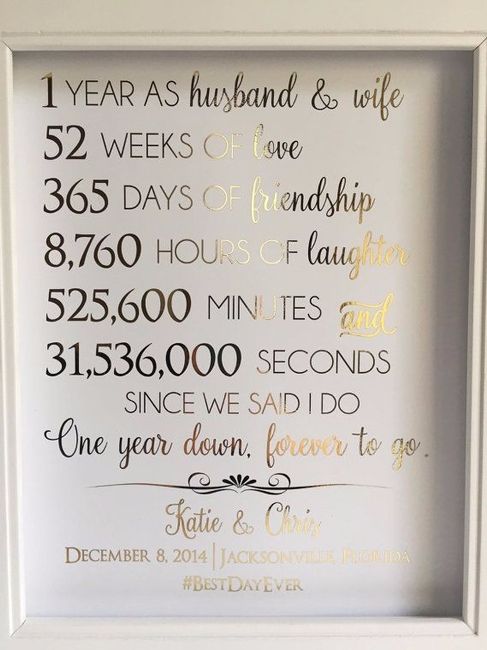 1 YEAR AS husband & wife
52 WEEKS OF love
365 DAYS OF friendship
8,760 HOURS OF laughter
525,600 MINUTES and
31,536,000 SECONDS
SINCE WE SAID I DO
One year down, forever to go.
Katie & Chris
DECEMBER 8, 2014 | JACKSONVILLE, FLORIDA
#BESTDAYEVER